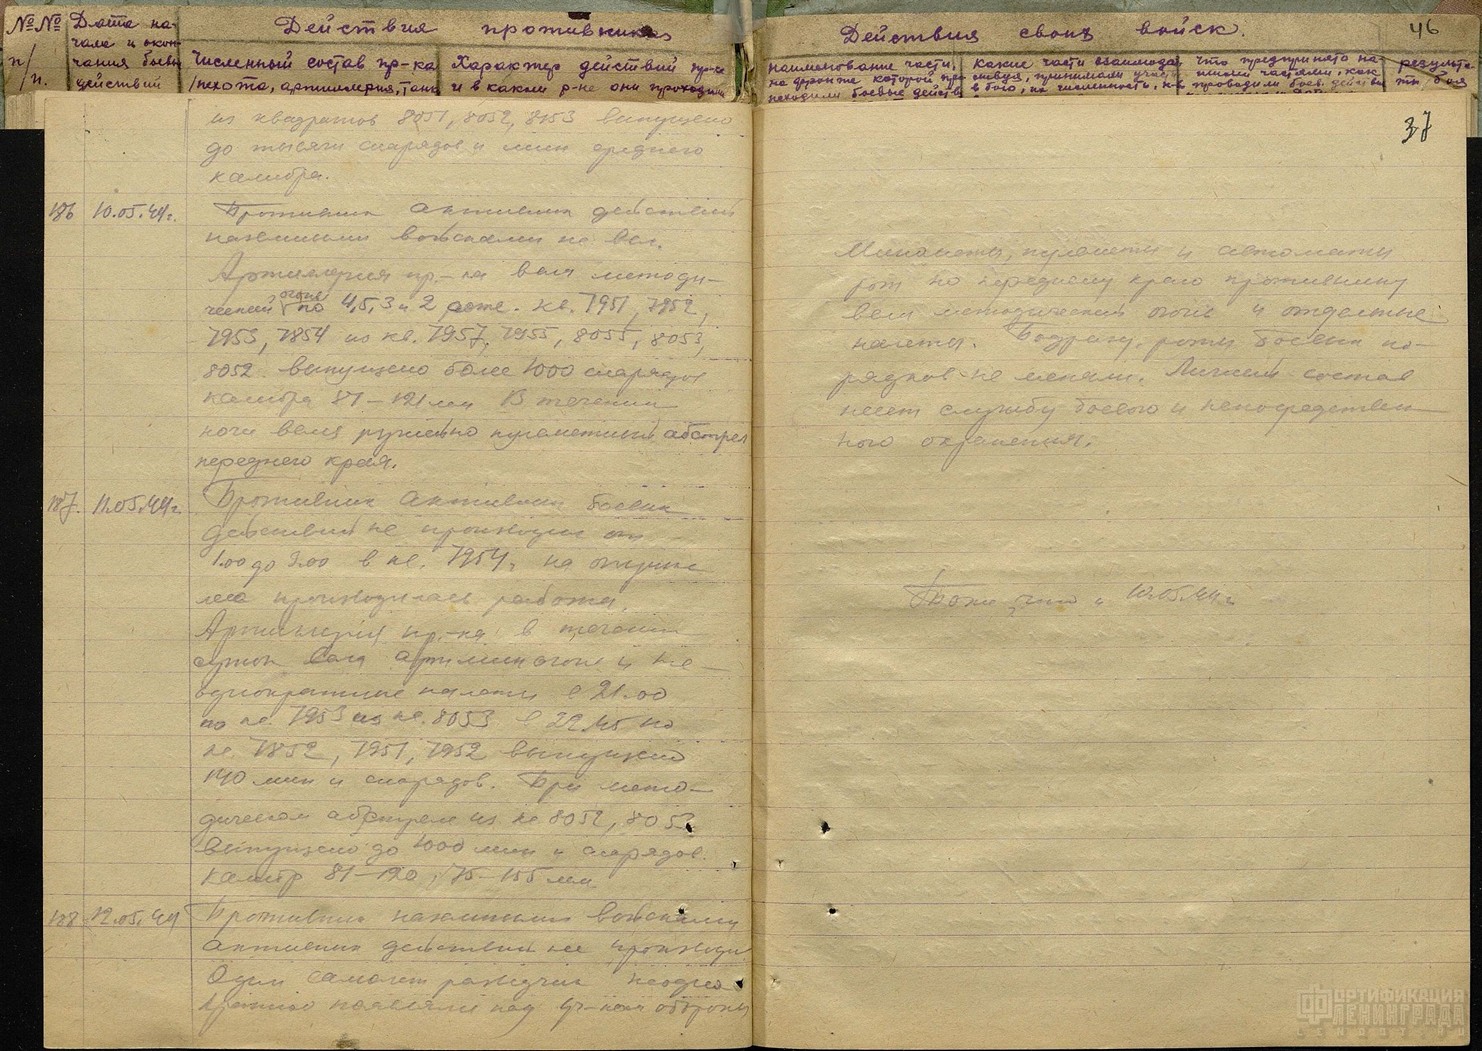 №№
п/п.
Дата на-
чала и окон-
чания боевы
действий
Действия противника
Численный состав пр-ка
/пехота, артиллерия, танк
Характер действий пр-ка
и в каком р-не они проходили
Действия своих войск.
46
наименование части,
на фронте которой пр-
исходили боевые действ
Какие части взаимодей
ствуя, принимали участ
в бою, их численность,
Что предпринято на-
шими частями, как
проводили боев. действ
результа-
ты боя
37
из квадратов 8051, 8052, 8153 выпущено
до тысячи снарядов и мин среднего
калибра.
186 10.05.44г. Противник активных действий
наземными войсками не вел.
Артиллерия пр-ка вела методи-
ческий огонь по 4,5,3 и 2 роте. кв. 7951, 7952,
7953, 7854 из кв. 7957, 7955, 8055, 8053,
8052. выпущено более 1000 снарядов
калибра 81-121 мм В течении
ночи вела ружейно пулеметный обстрел
переднего края.
187. 11.05.44г. Противник активных боевых
действий не производил
1.00 до 3.00 в кв. 7954, на опушке
леса производились работы.
Артиллерия пр-ка в течении
суток вела огонь и не-
однократные налеты в 21.00
по кв. 7953 из кв. 8053 в 22.45 по
кв. 7852, 7951, 7952 выпущено
140 мин и снарядов. При мето-
дическом обстреле из кв 8052, 8053
выпущено до 1000 мин и снарядов.
Калибр 81-120, 75-155 мм
188 12.05.44 Противник наземными войсками
активных действий не производи
Один самолет разведчик неодно
кратно появлялся над уч-ком обороны
Минометы, пулеметы и автоматы
рот по переднему краю противнику
вели методический огонь и отдельные
налеты. Подразд. роты боевых по-
рядков не меняли. Личный состав
несет службу боевого и непосредствен
ного охранения.
Тоже что и 10.05.44г.
ФОРТИФИКАЦИЯ
ЛЕНИНГРАДА